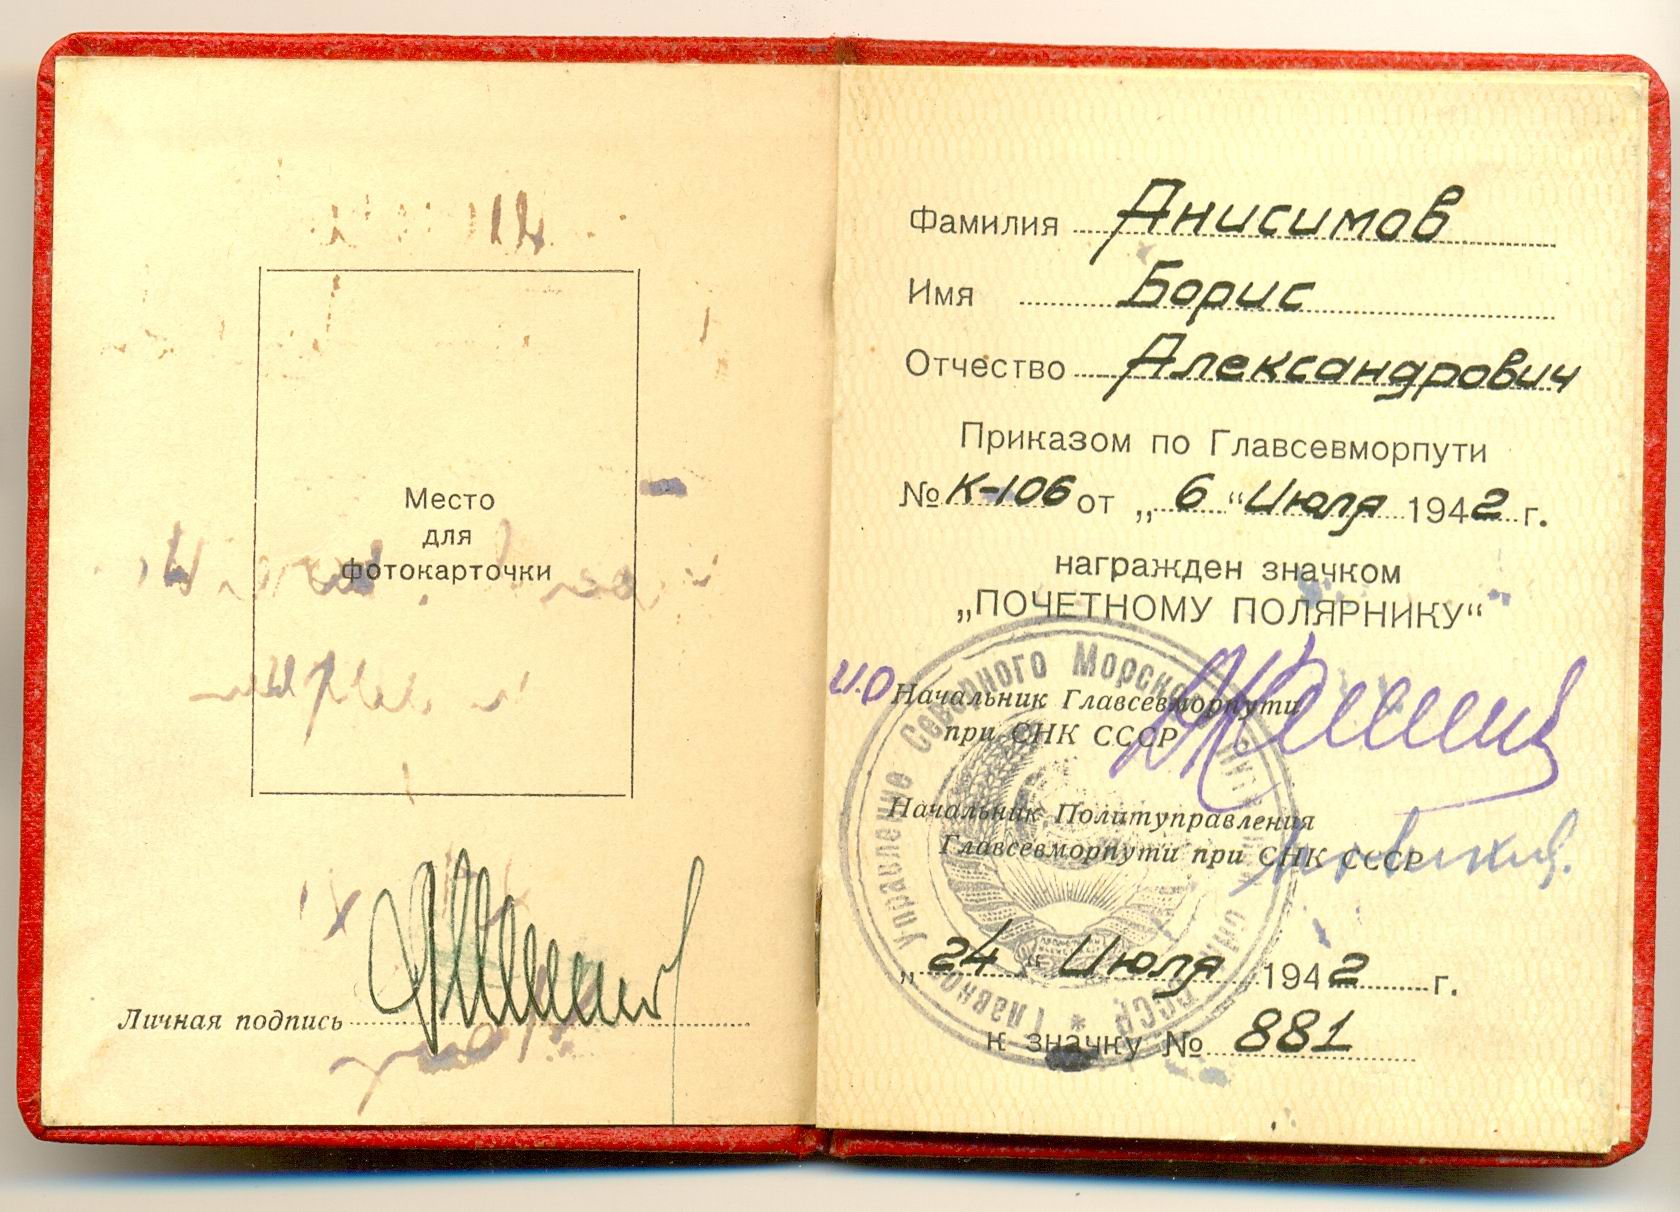 Место
для
фотокарточки
Личная подпись
Фамилия Анисимов
Имя Борис
Отчество Александрович
Приказом по Главсевморпути
№ К-106 от „ 6 “ Июля 1942 г.
награжден значком
„ПОЧЕТНОМУ ПОЛЯРНИКУ“
И.О Начальник Главсевморпути
при СНК СССР
Начальник Политуправления
Главсевморпути при СНК СССР
„ 24 “ Июля 1942 г.
к значку № 881
Главное Управление Северного Морского Пути при СНК СССР *